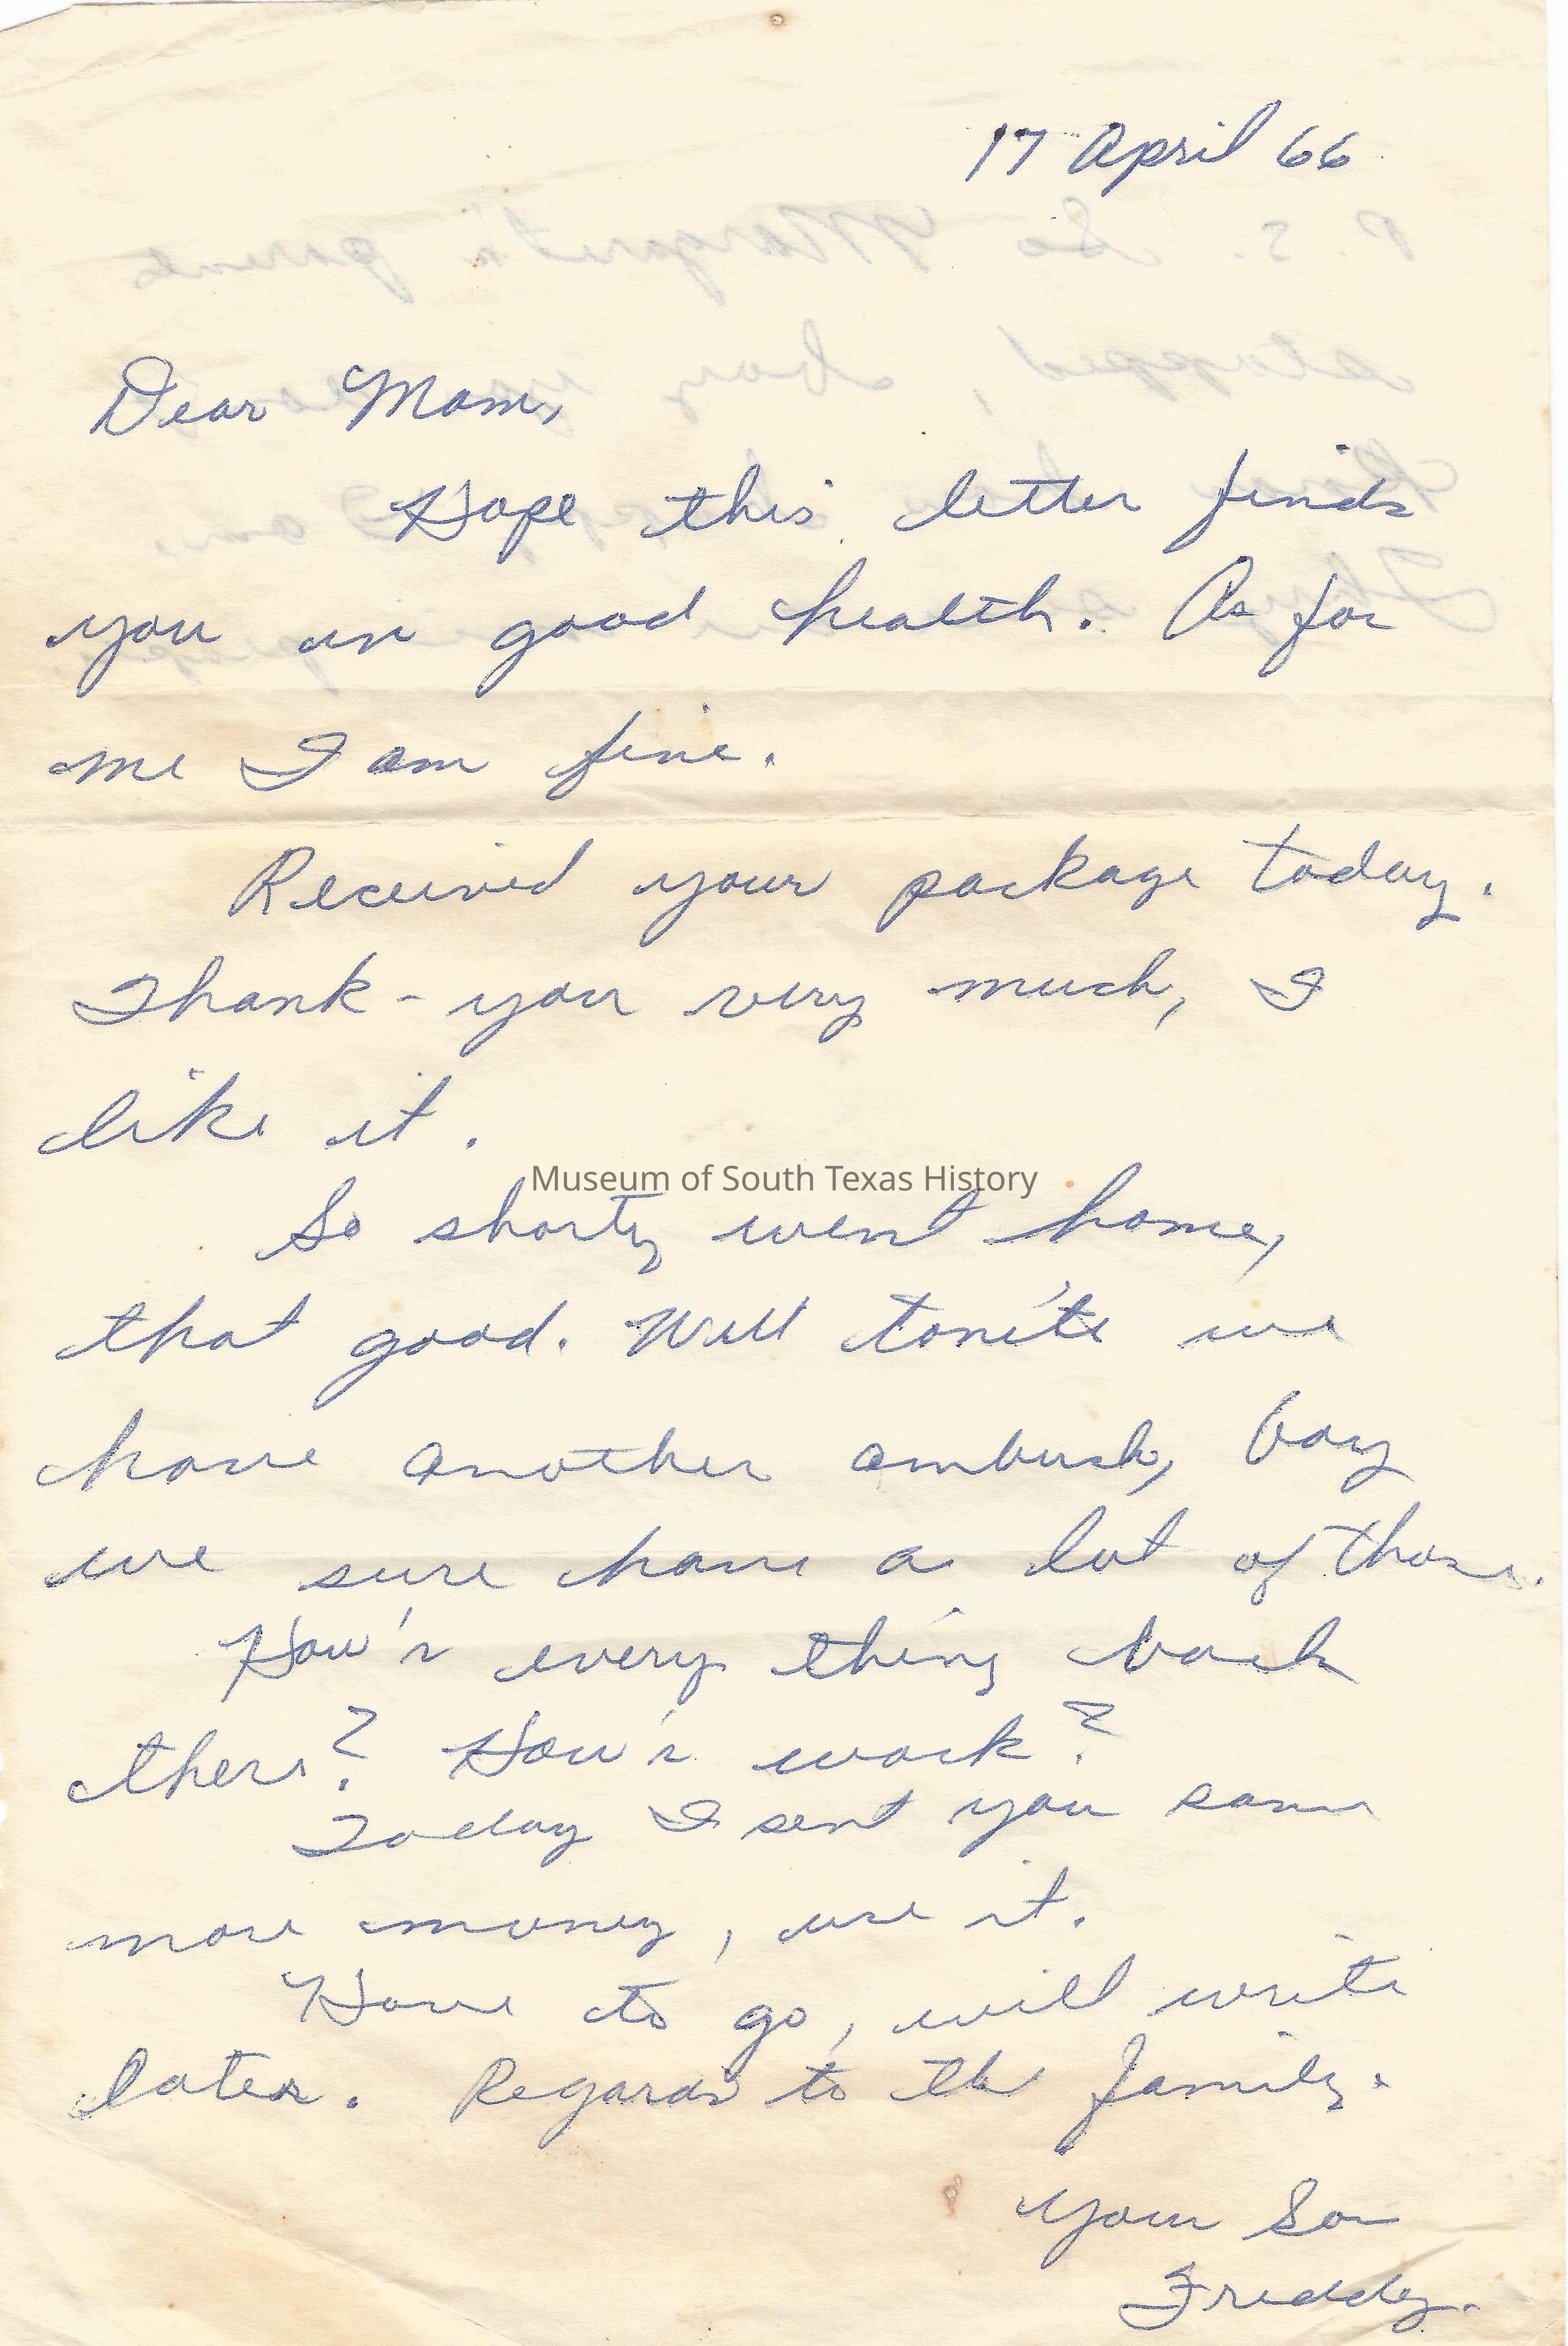 17 April 66
Dear Mom,
Hope this letter finds
you in good health. As for
me I am fine.
Received your package today.
Thank-you very much, I
like it.
Museum of South Texas History
So shorty went home,
that good. Well tonite we
have another ambush, boy
we sure have a lot of those.
How's every thing back
there? How's work?
Today I sent you some
more money, use it.
Have to go, will write
later. Regards to the family.
Your Son
Freddy.